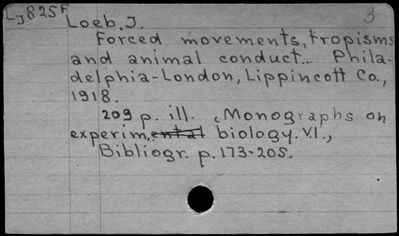 LJ825F
3
Loeb, J.
Forced movements, tropisms
and animal conduct... Phila-
delphia-London, Lippincott Co.,
1918.
209 p. ill. (Monographs on
experim.ental biology. V.I.,
Bibliogr. p. 173-205.